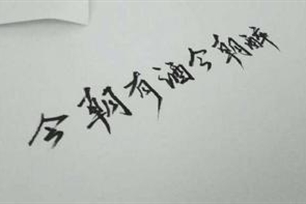 今朝有酒今朝醉